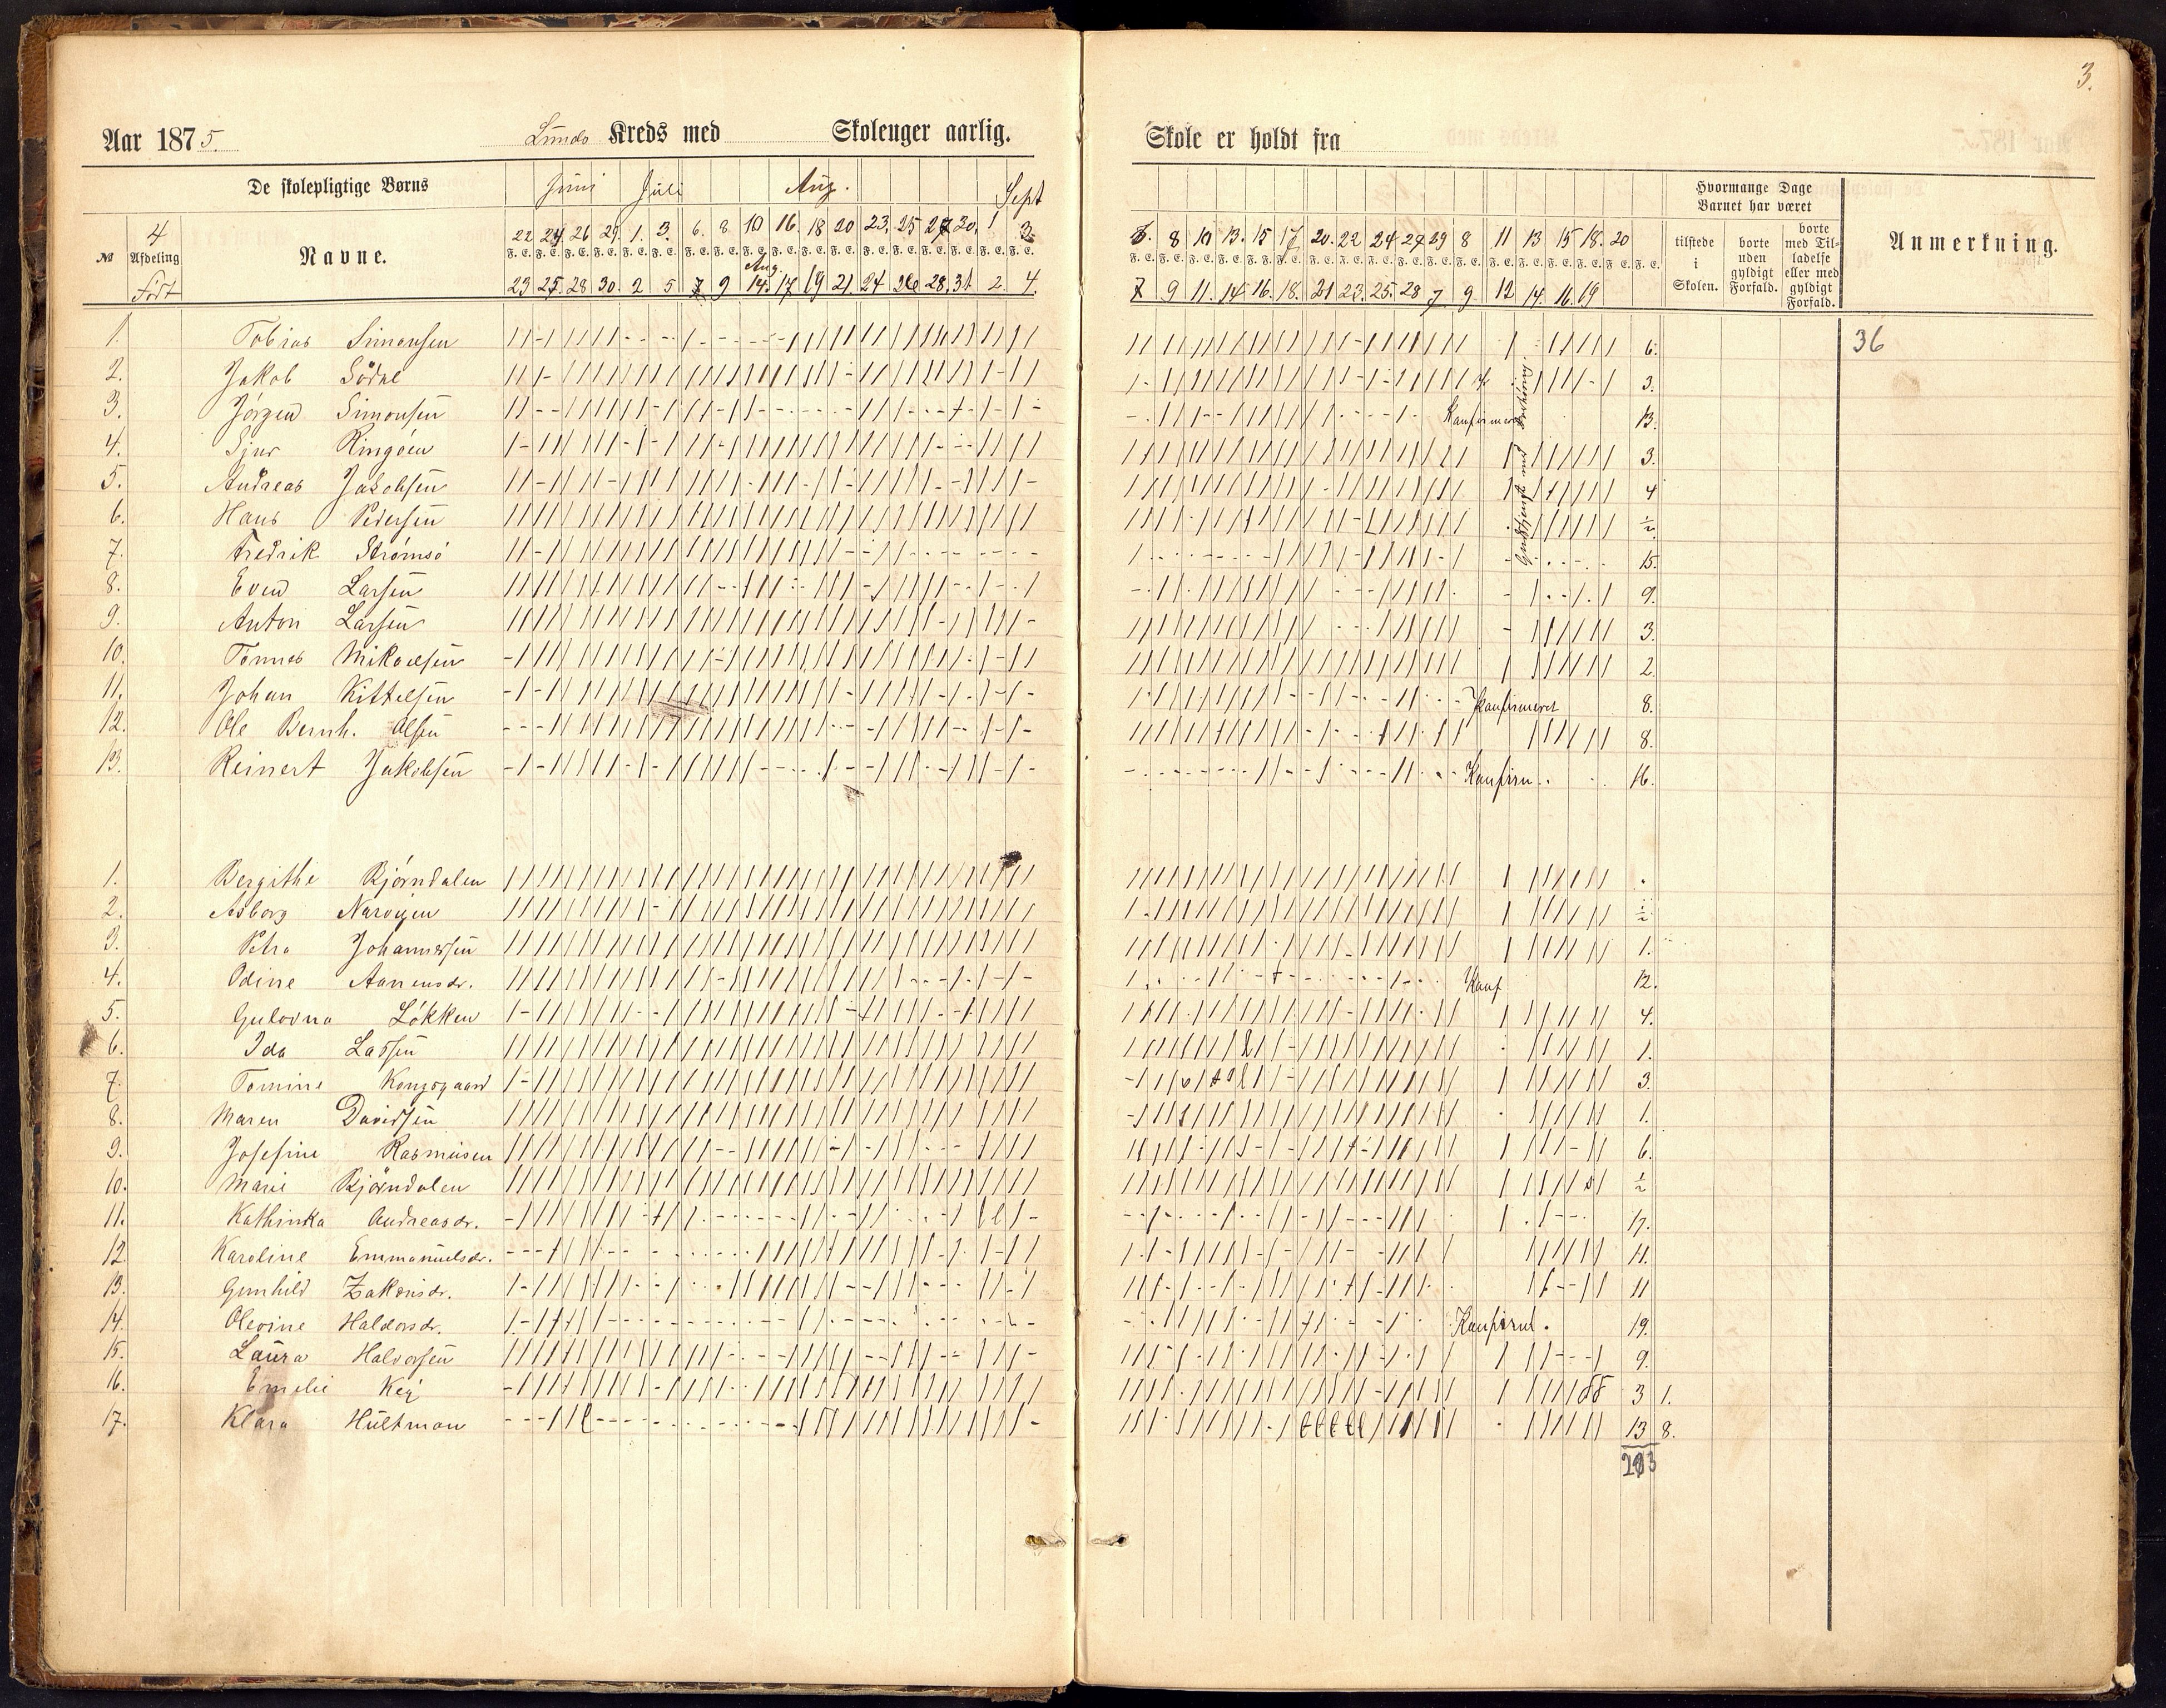 3.
Aar 1875.
Lunds Kreds med Skoleuger aarlig.
Skole er holdt fra
De skolepligtige Børns
Juni Juli Aug. Sept
Hvormange Dage Barnet har været
№ 4 Afdeling Født Navne.
22 24 26 29 1. 3. 6. 8 10 16. 18 20 23. 25 27 30. 1 3.
F. E. F. E. F. E. F. E. F. E. F. E. F. E. F. E. F. E. F. E. F. E. F. E. F. E. F. E. F. E. F. E. F. E. F. E.
Aug.
23 25. 28 30. 2 5 7 9 14. 17 19 21 24 26 28. 31 2. 4.
6. 8 10 13. 15 17 20. 22 24 27 29 8 11 13 15 18. 20
F. E. F. E. F. E. F. E. F. E. F. E. F. E. F. E. F. E. F. E. F. E. F. E. F. E. F. E. F. E. F. E. F. E. F. E.
7 9 11. 14 16. 18. 21 23. 25. 28 7 9. 12 14. 16. 19
tilstede i Skolen.
borte uden gyldigt Forfald.
borte med Tilladelse eller med gyldigt Forfald.
Anmerkning.
1. Tobias Simonsen 6. 36
2. Jakob Sødal 3.
3. Jørgen Simonsen Konfirmeret 13.
4. Sjur Ringøen 3.
5. Andreas Jakobsen 4
6. Hans Pedersen ½
7. Fredrik Strømsø 15.
8. Even Larsen 9.
9. Anton Larsen 3.
10. Tønnes Mikaelsen 2.
11. Johan Kittelsen Konfirmeret 8.
12. Ole Bernh. Olsen 8.
13. Reinert Jakobsen Konfirm. 16.
1. Bergithe Bjørndalen
2. Asborg ½
3. Petra Johannessen 1.
4. Odine Aanensdr. Konf 12.
5. Gulovna Løkken 4.
6. Ida Lassen 1.
7. Tomine Kongsgaard 3.
8. Maren Davidsen 1.
9. Josefine Rasmusen 6.
10. Marie Bjørndalen ½
11. Kathinka Andreasdr. 17.
12 Karoline Emmanuelsdr. 11.
13. Gunhild Zakrisdr. 11
14. Olevine Haldorsdr. Konfirm. 19.
15. Laura Halvorsen 9.
16. Emelie Key 3 1.
17. Klara Hultman 13 8.